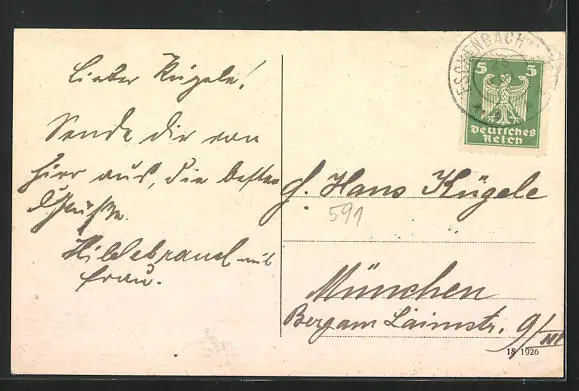 Lieber Kügele!
Sende dir von
hier aus, die besten
Grüße.
Hildebrand mit
Frau.
ESCHENBACH
5 5
Deutsches
Reich
H. Hans Kügele
591
München
Bergam Laimstr. 9/III
18 1926